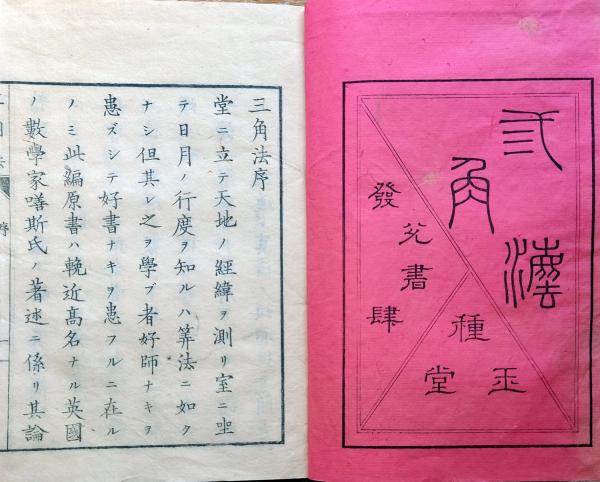 三角法
發兌書肆
種玉堂
三角法序
堂ニ立テ天地ノ經緯ヲ測リ室ニ坐
テ日月ノ行度ヲ知ルハ筭法ニ如ク
ナシ但其レ之ヲ學ブ者好師ナキヲ
患ズシテ好書ナキヲ患フルニ在ル
ノミ此編原書ハ輓近高名ナル英國
ノ數學家嘻斯氏ノ著述ニ係リ其論
序
一